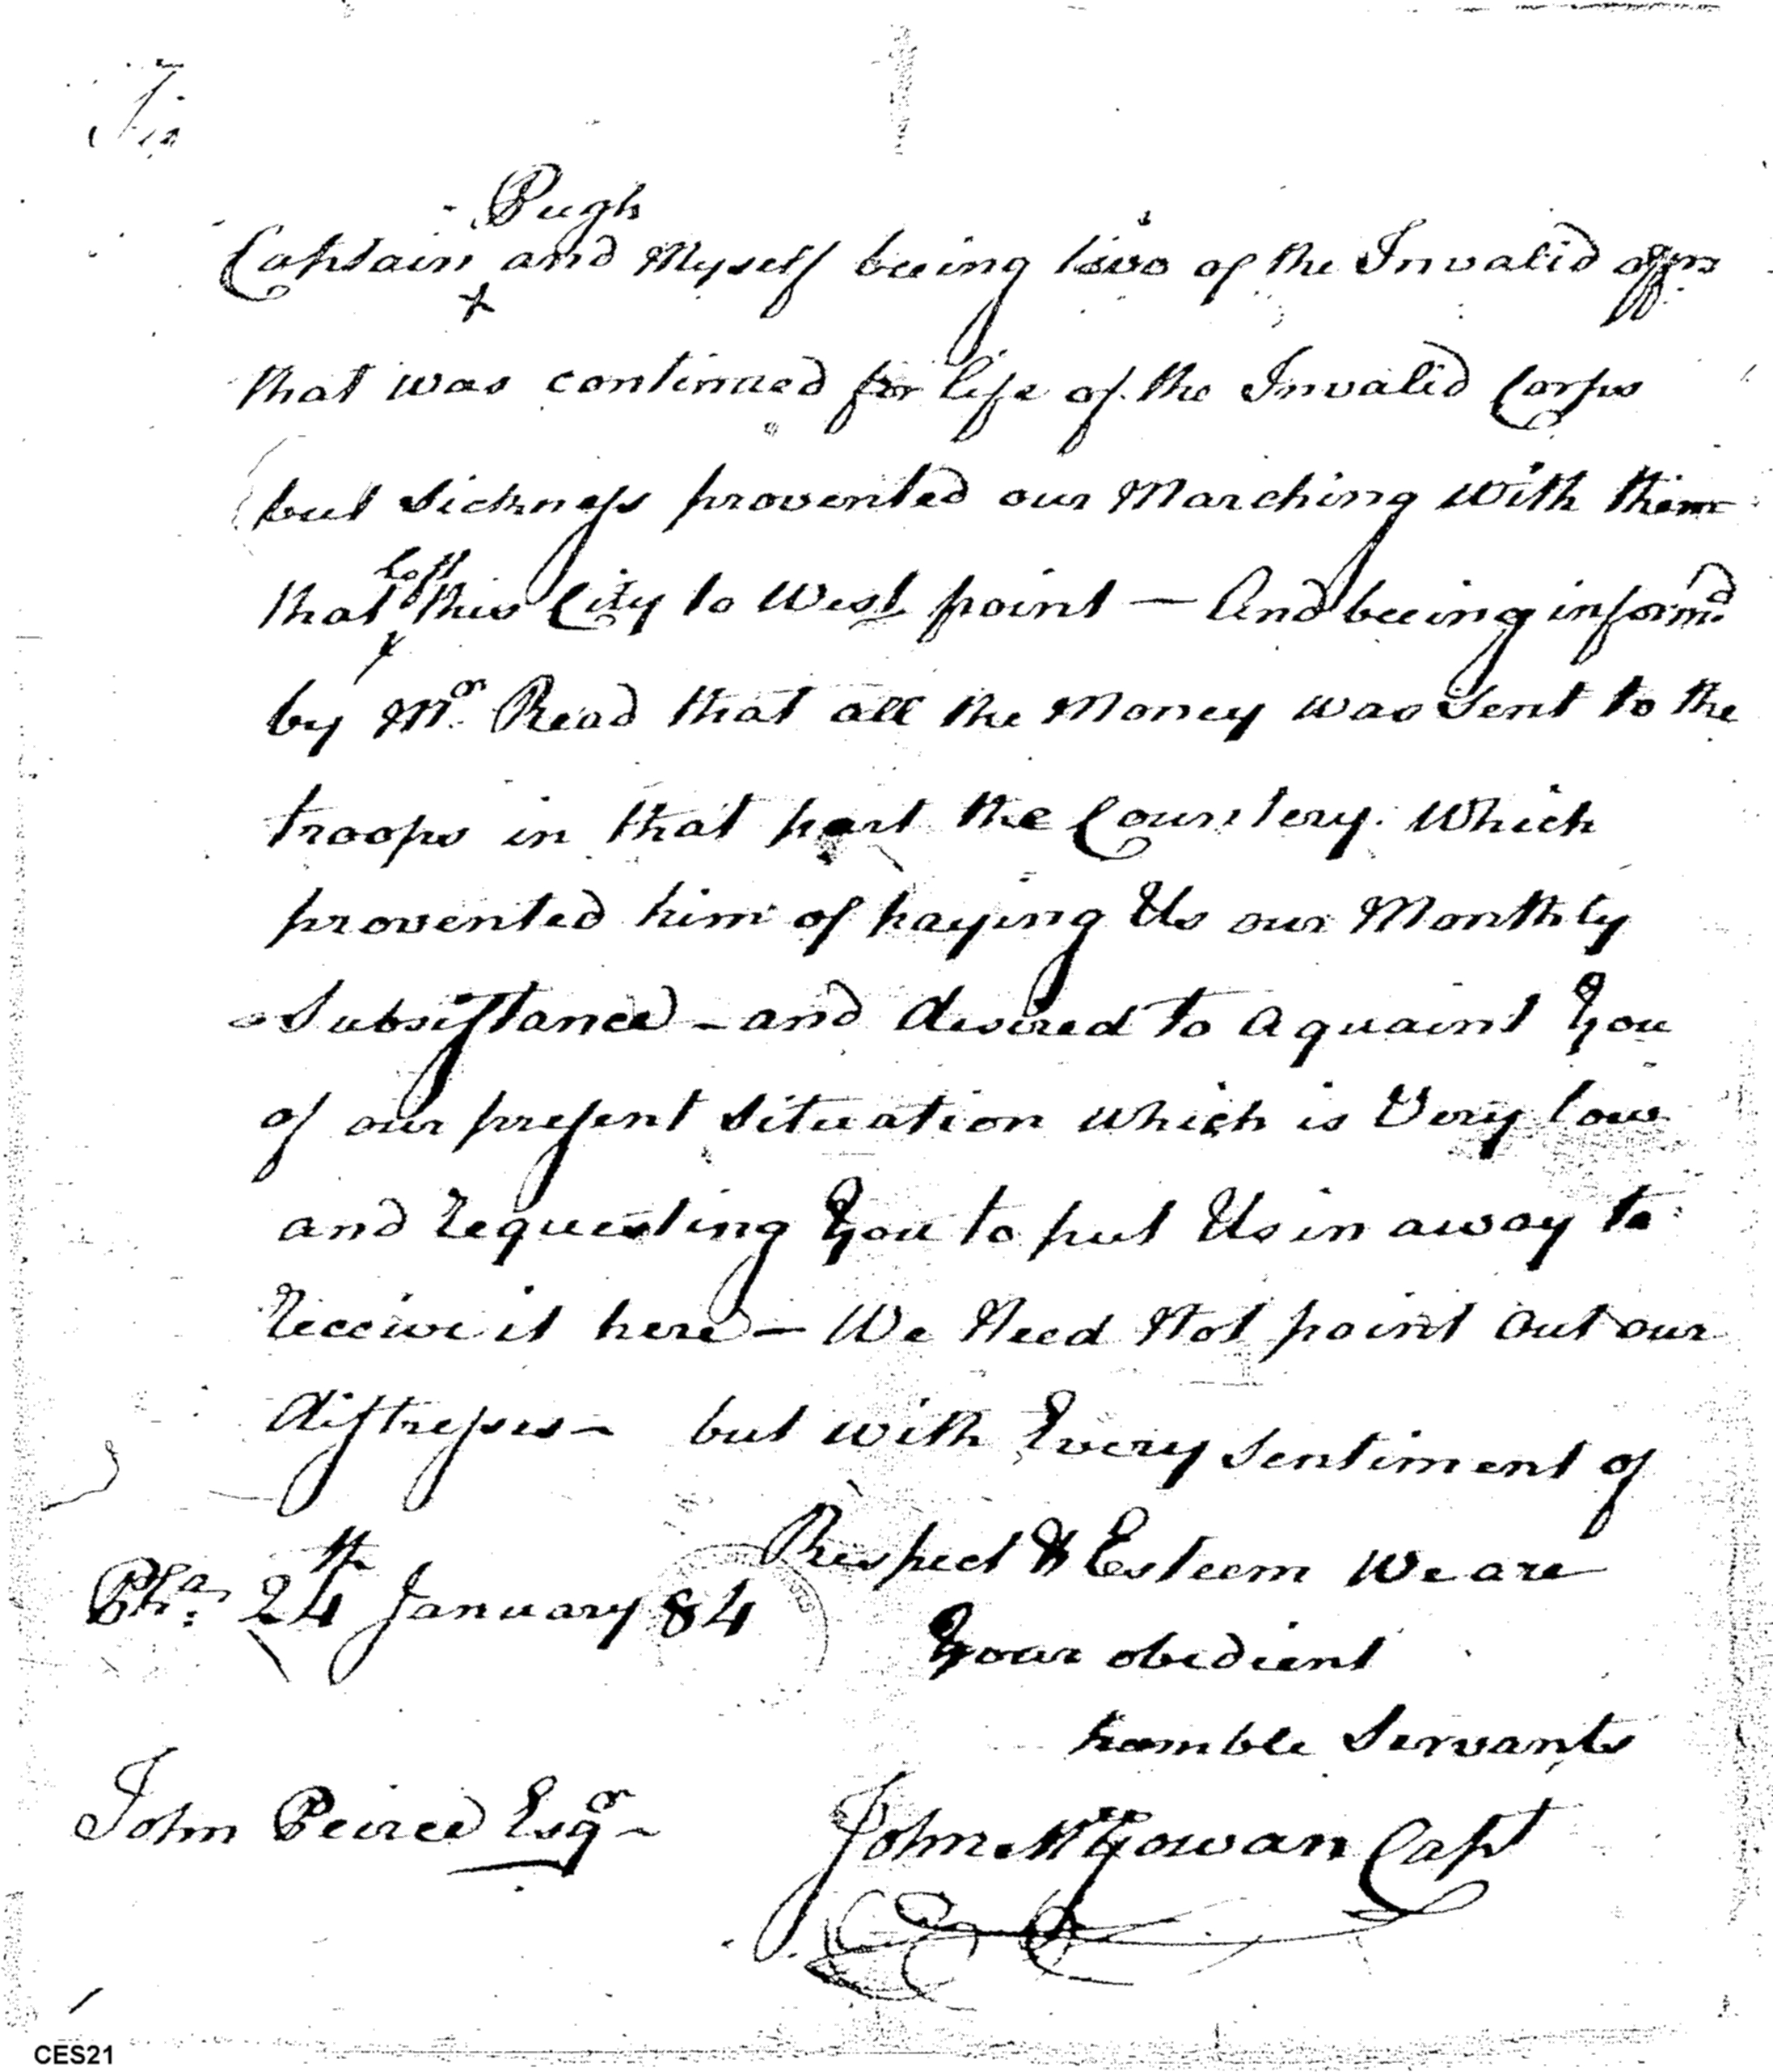 Sir
Pugh
Captain and Myself beeing two of the Invalid offrs
x
that was continued for life of the Invalid Corps
but Sickness provented our Marching With them
Left
that this City to West point — And beeing informd
x
by Mr. Read that all the Money was Sent to the
troops in that part the Countery. Which
provented him of paying Us our Monthly
Subsistance – and desired to aquaint You
of our present Situation which is Very low
and requesting You to put Us in away to
receive it here – We Need Not point out our
distresses – but with Every Sentiment of
Respect & Esteem We are
Pha: 24th January 84
Your obedient
humble Servants
John Peirce Esqr –
John McGowan Capt
CES21